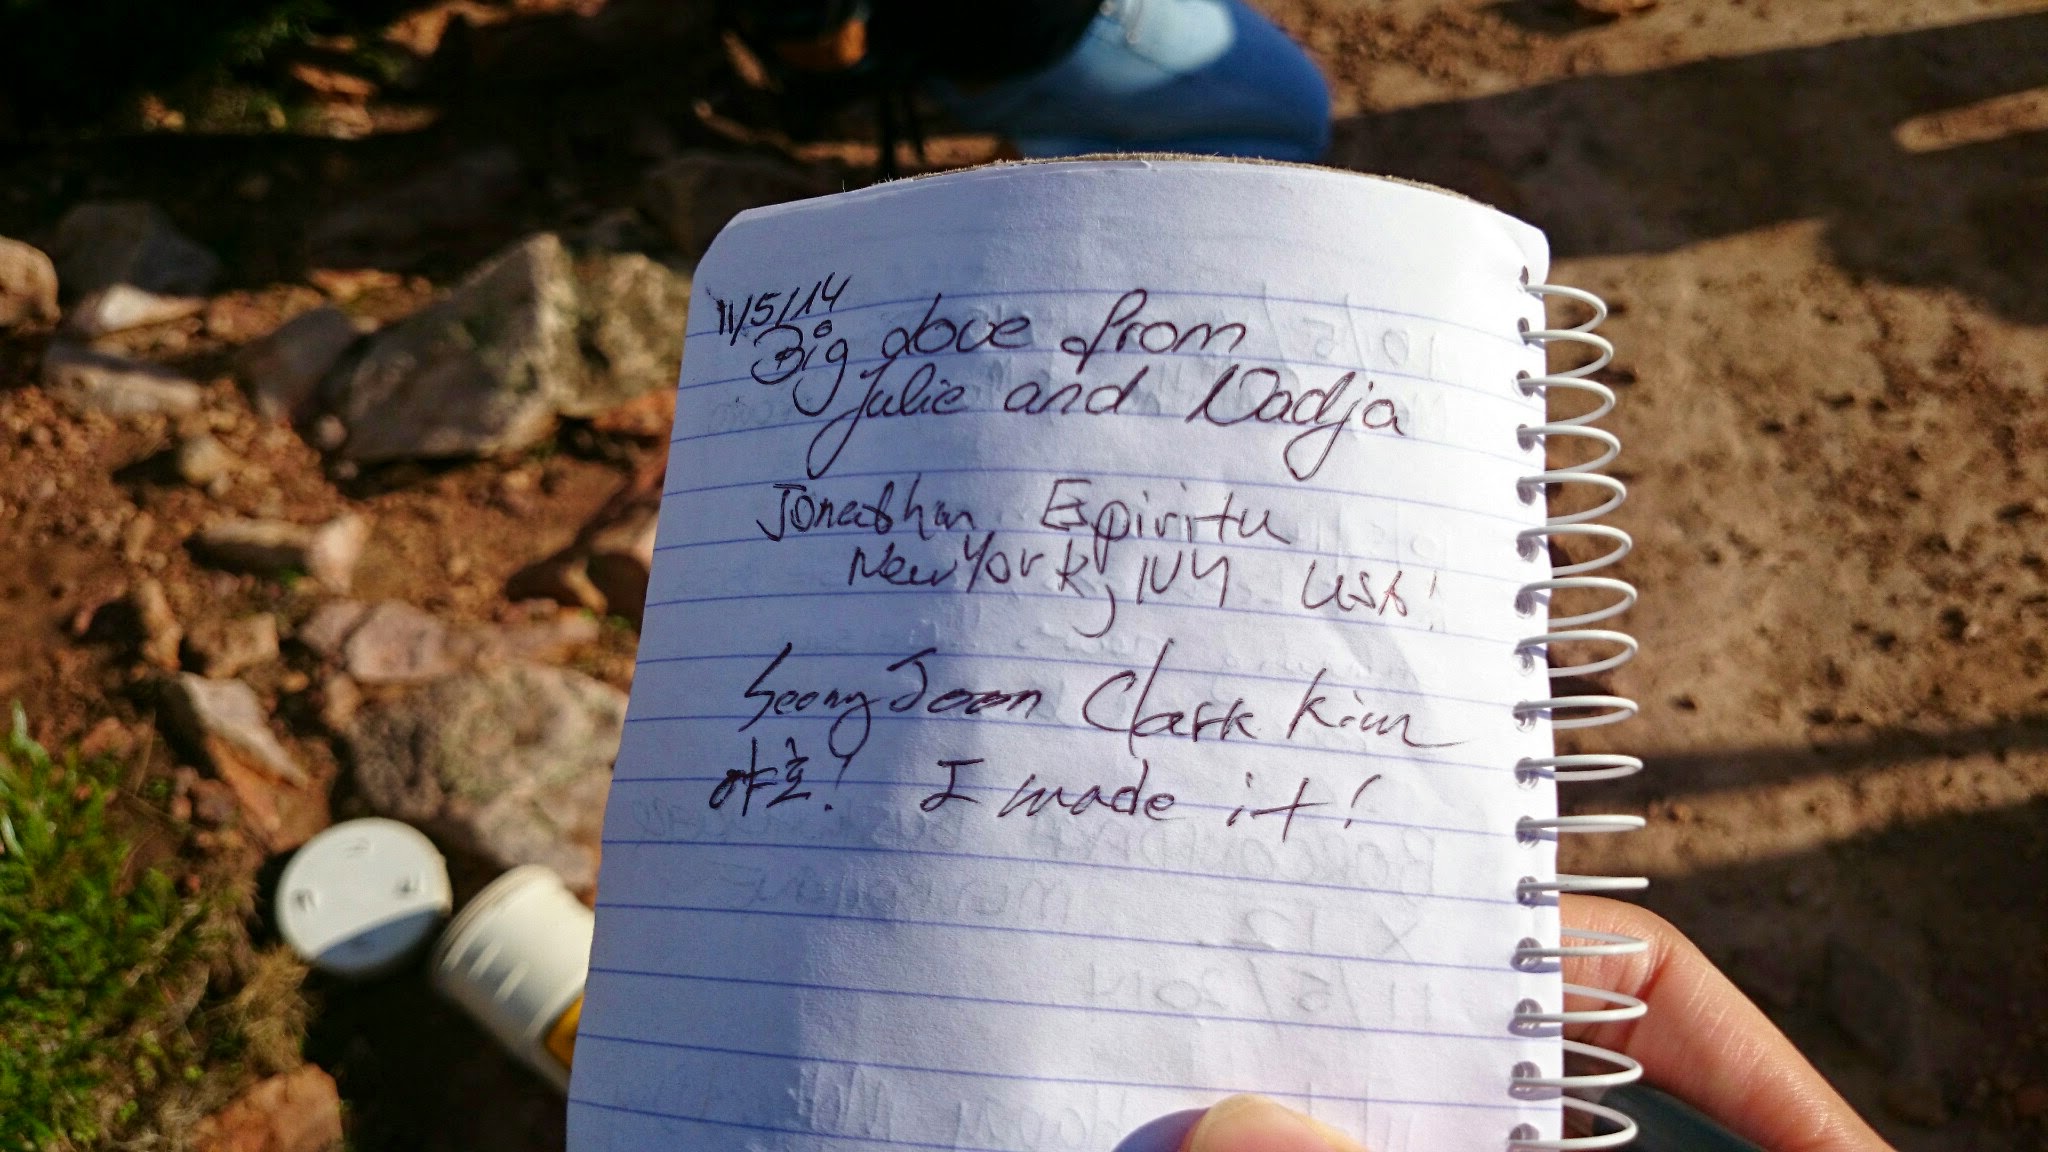 11/5/14
Big love from
Julie and Nadja
Jonathan Espiritu
New York, NY USA!
Seong Joon Clark Kim
야호! I made it!
11/5/2014